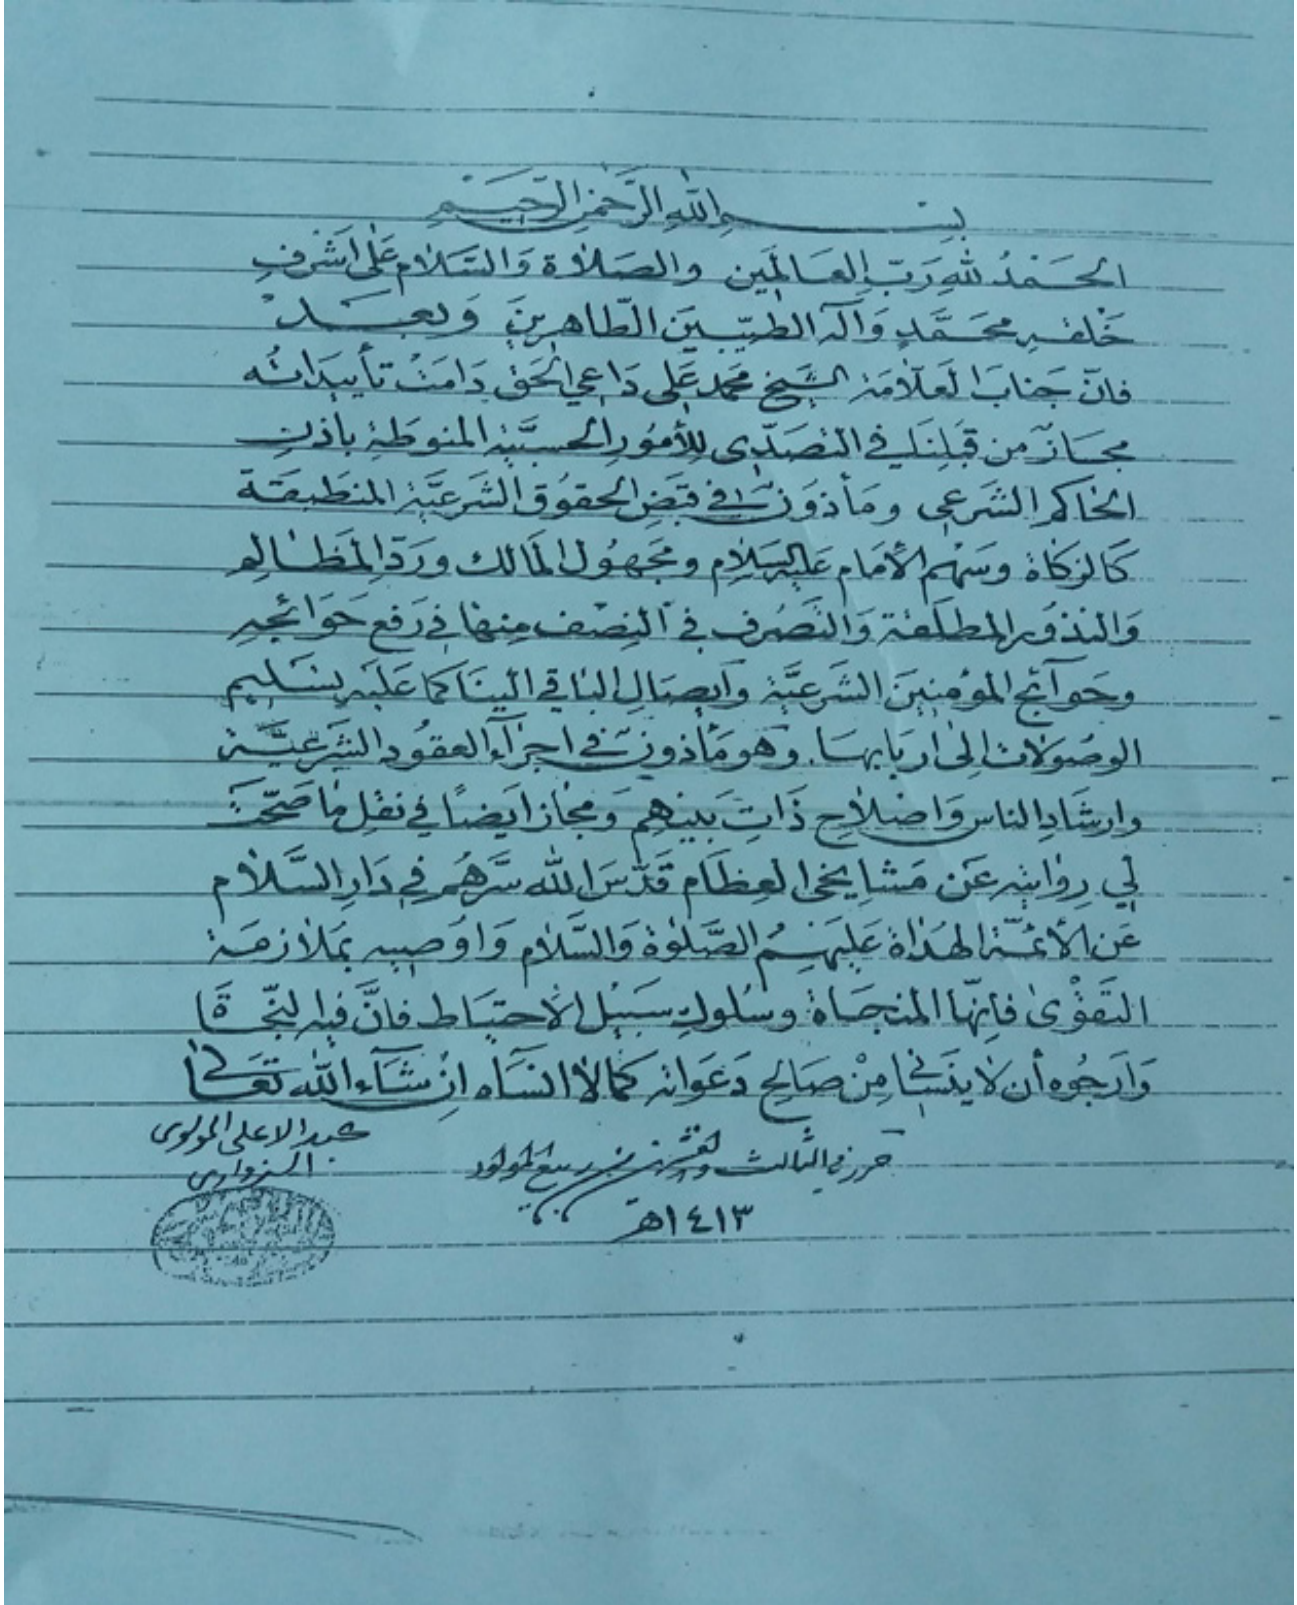 بِسْمِ اللهِ الرَّحْمٰنِ الرَّحِيْمِ
الحَمْدُ للهِ رَبِّ العَالَمِين والصَلاة وَالسَّلام عَلى اَشْرفِ
خَلقهِ محَمَّدٍ وَآله الطيّبينَ الطّاهِرينَ وَبعَدْ
فانّ جنابَ العَلّامَة الشيخ محمد عَلى دَاعي الحَق دَامَتْ تأييدَاتُه
مجَازٌ من قبَلِنَا في التصَدّى لِلأمُورِ الحسبَيّة المنوطَة باذنِ
الحاكم الشَرعي ومَأذوَنٌ في قبَضِ الحقوُق الشَرعيَّة المنطَبقَة
كَالزكاة وسَهْم الأمَام عَليه السَلام ومجَهوُل المَالك ورَدّ المَظالم
وَالنذوُر المطلَقة وَالتَصَرف في النِصْف مِنهَا في رَفع حَوَائجهِ
وحَوآئج المؤمنِينَ الشَرعيَّة وَايصَالِ البَاقي الينَا كما عَلَيه بتسَليم
الوصُولات الى اربَابهَا. وَهو مَأذونٌ في اجرَآء العقوُد الشَرعيَّة
وارشَادِ الناس وَاصْلاحِ ذَاتِ بَينِهم وَمجَاز ايَضاً في نقلِ مَا صَحّتْ
لي رِوَايته عَن مَشايخى العِظَام قَدّسَ الله سَّرهُم في دَارِ السَّلام
عَن الأئمّة الهدَاة عَليهَمُ الصَّلوٰة وَالسَّلام وَاوُصيه بمَلازمَة
التَقوْىٰ فانهّا المنجَاة وسُلوك سَبيْل الاحتيَاط فانَّ فيه النجّاة
وَارجوُه أن لا ينَسَاني مِنْ صَالح دَعَواته كمَا لا انسَاه انْ شَآءَ الله تعَالىٰ
عبد الاعلى الموسوى
السبزوارى
حرر في الثالث والعشرين من ربيع المولود
١٤١٣هـ